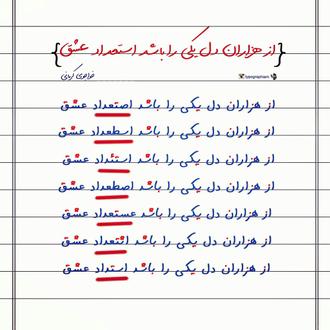 {از هزاران دل یکی را باشد استعداد عشق}
خواجوی کرمانی
typographiam
از هزاران دل یکی را باشد اصتعداد عشق
از هزاران دل یکی را باشد اسطعداد عشق
از هزاران دل یکی را باشد استئداد عشق
از هزاران دل یکی را باشد اصطعداد عشق
از هزاران دل یکی را باشد عستعداد عشق
از هزاران دل یکی را باشد اثتعداد عشق
از هزاران دل یکی را باشد استداد عشق